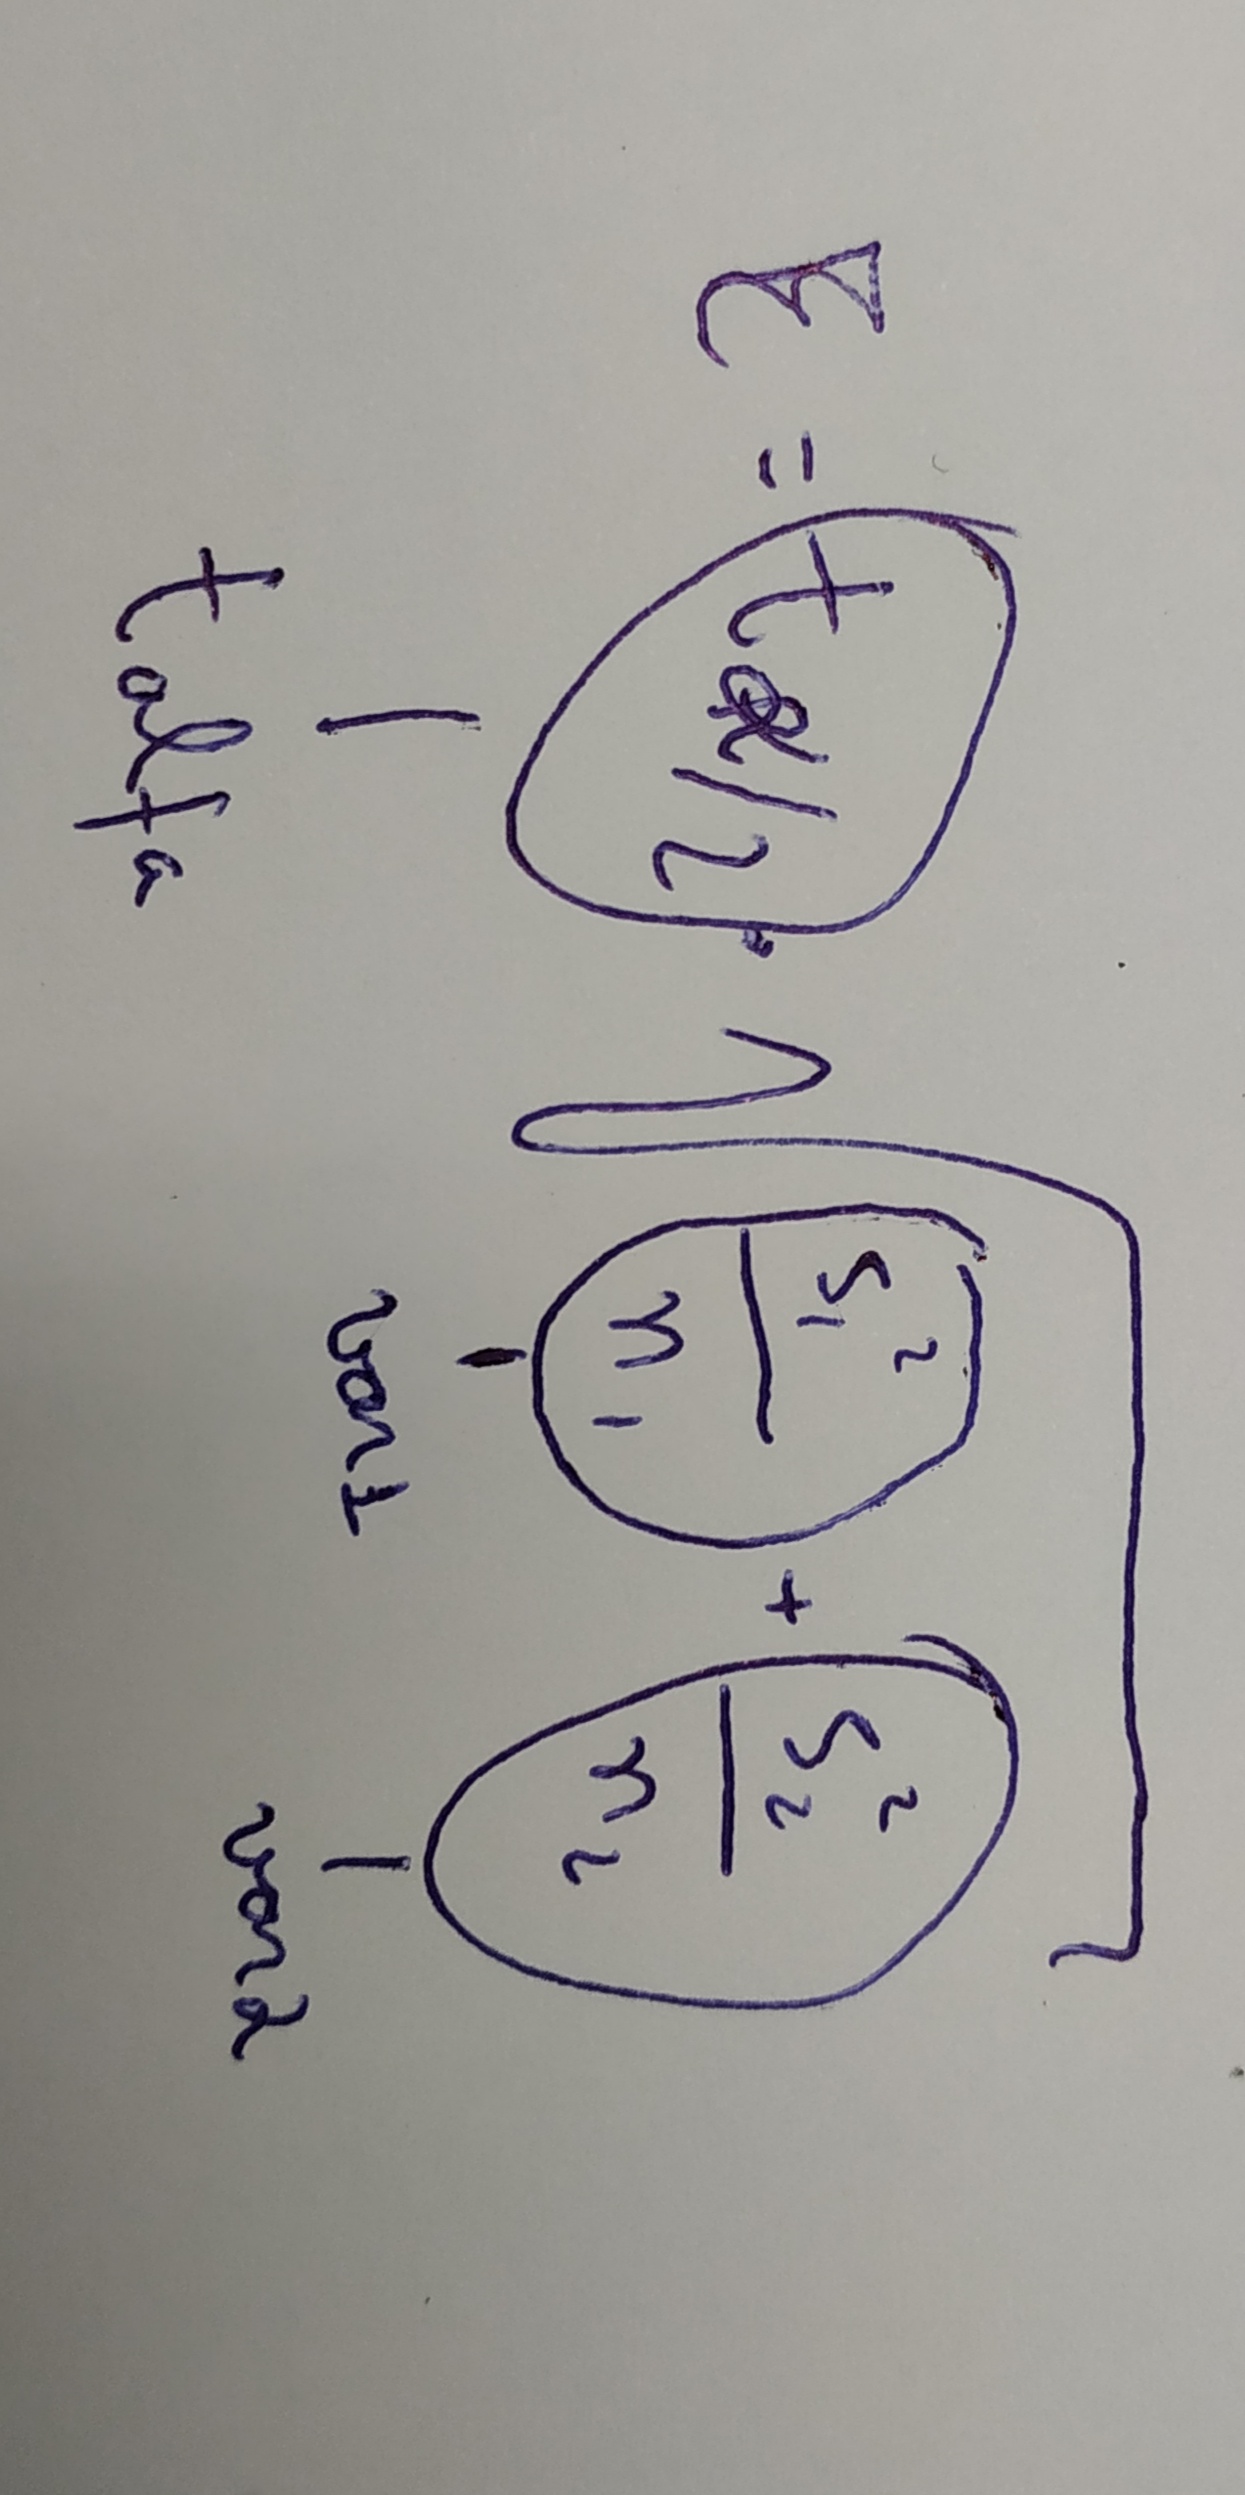 E = t α/2 . √ S₁²/n₁ + S₂²/n₂
talfa var1 var2